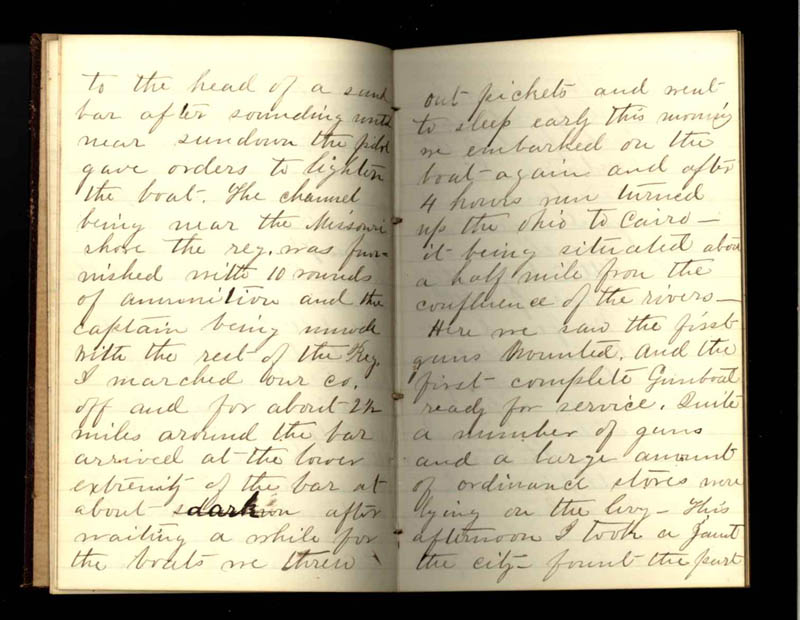 to the head of a sand
bar after sounding until
near sundown the pilot
gave orders to lighten
the boat. The channel
being near the Missouri
shore the reg. was fur-
nished with 10 rounds
of ammunition and the
captain being
with the rest of the Reg.
I marched our co.
off and for about 2½
miles around the bar
arrived at the lower
extremity of the bar at
about dark after
waiting a while for
the boats we threw
out pickets and went
to sleep early this morning
we embarked on the
boat again and after
4 hours run turned
up the Ohio to Cairo —
it being situated about
a half mile fron the
confluence of the rivers —
Here we saw the first
guns mounted. And the
first complete Gunboat
ready for service. Quite
a number of guns
and a large amount
of ordinance stores were
lying on the levy — This
afternoon I took a Jaunt
the city — fount the part